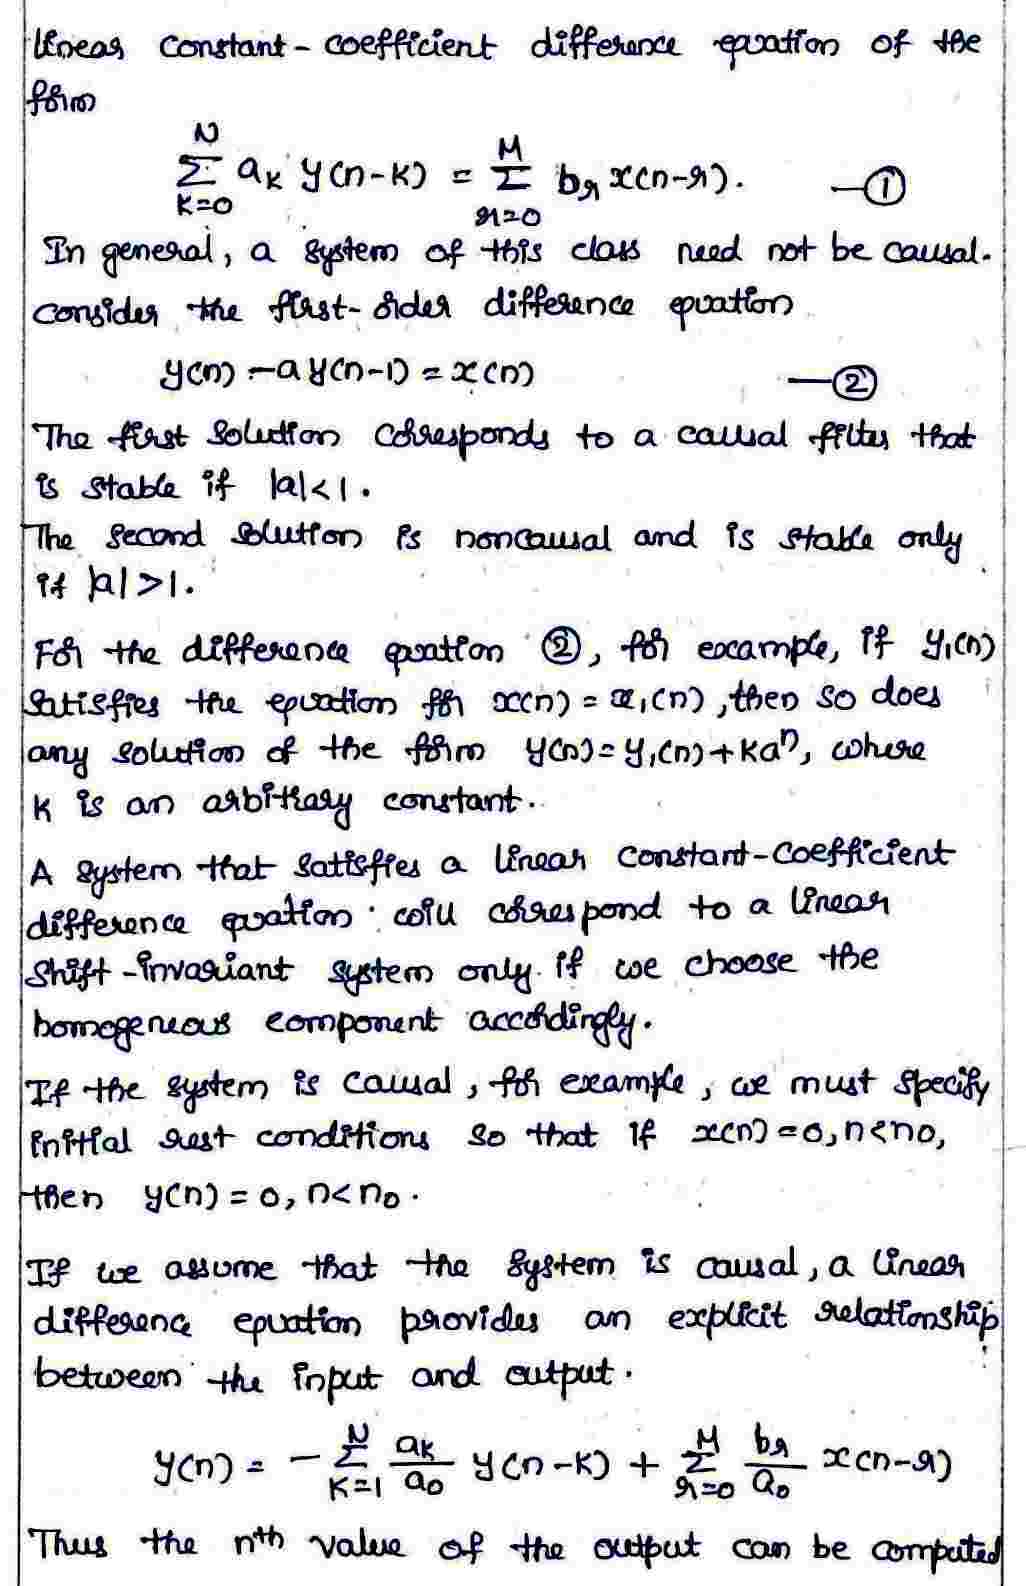 linear constant-coefficient difference equation of the
form
N∑k=0 ak y(n-k) = M∑r=0 br x(n-r). —①
In general, a system of this class need not be causal.
consider the first-order difference equation
y(n) - a y(n-1) = x(n) —②
The first solution corresponds to a causal filter that
is stable if |a|<1.
The second solution is noncausal and is stable only
if |a|>1.
For the difference equation ②, for example, if y₁(n)
satisfies the equation for x(n) = x₁(n), then so does
any solution of the form y(n) = y₁(n) + kaⁿ, where
k is an arbitrary constant.
A system that satisfies a linear constant-coefficient
difference equation will correspond to a linear
shift-invariant system only if we choose the
homogeneous component accordingly.
If the system is causal, for example, we must specify
initial rest conditions so that if x(n) = 0, n<n0,
then y(n) = 0, n<n₀.
If we assume that the system is causal, a linear
difference equation provides an explicit relationship
between the input and output.
y(n) = - N∑k=1 ak/a₀ y(n-k) + M∑r=0 br/a₀ x(n-r)
Thus the nth value of the output can be computed